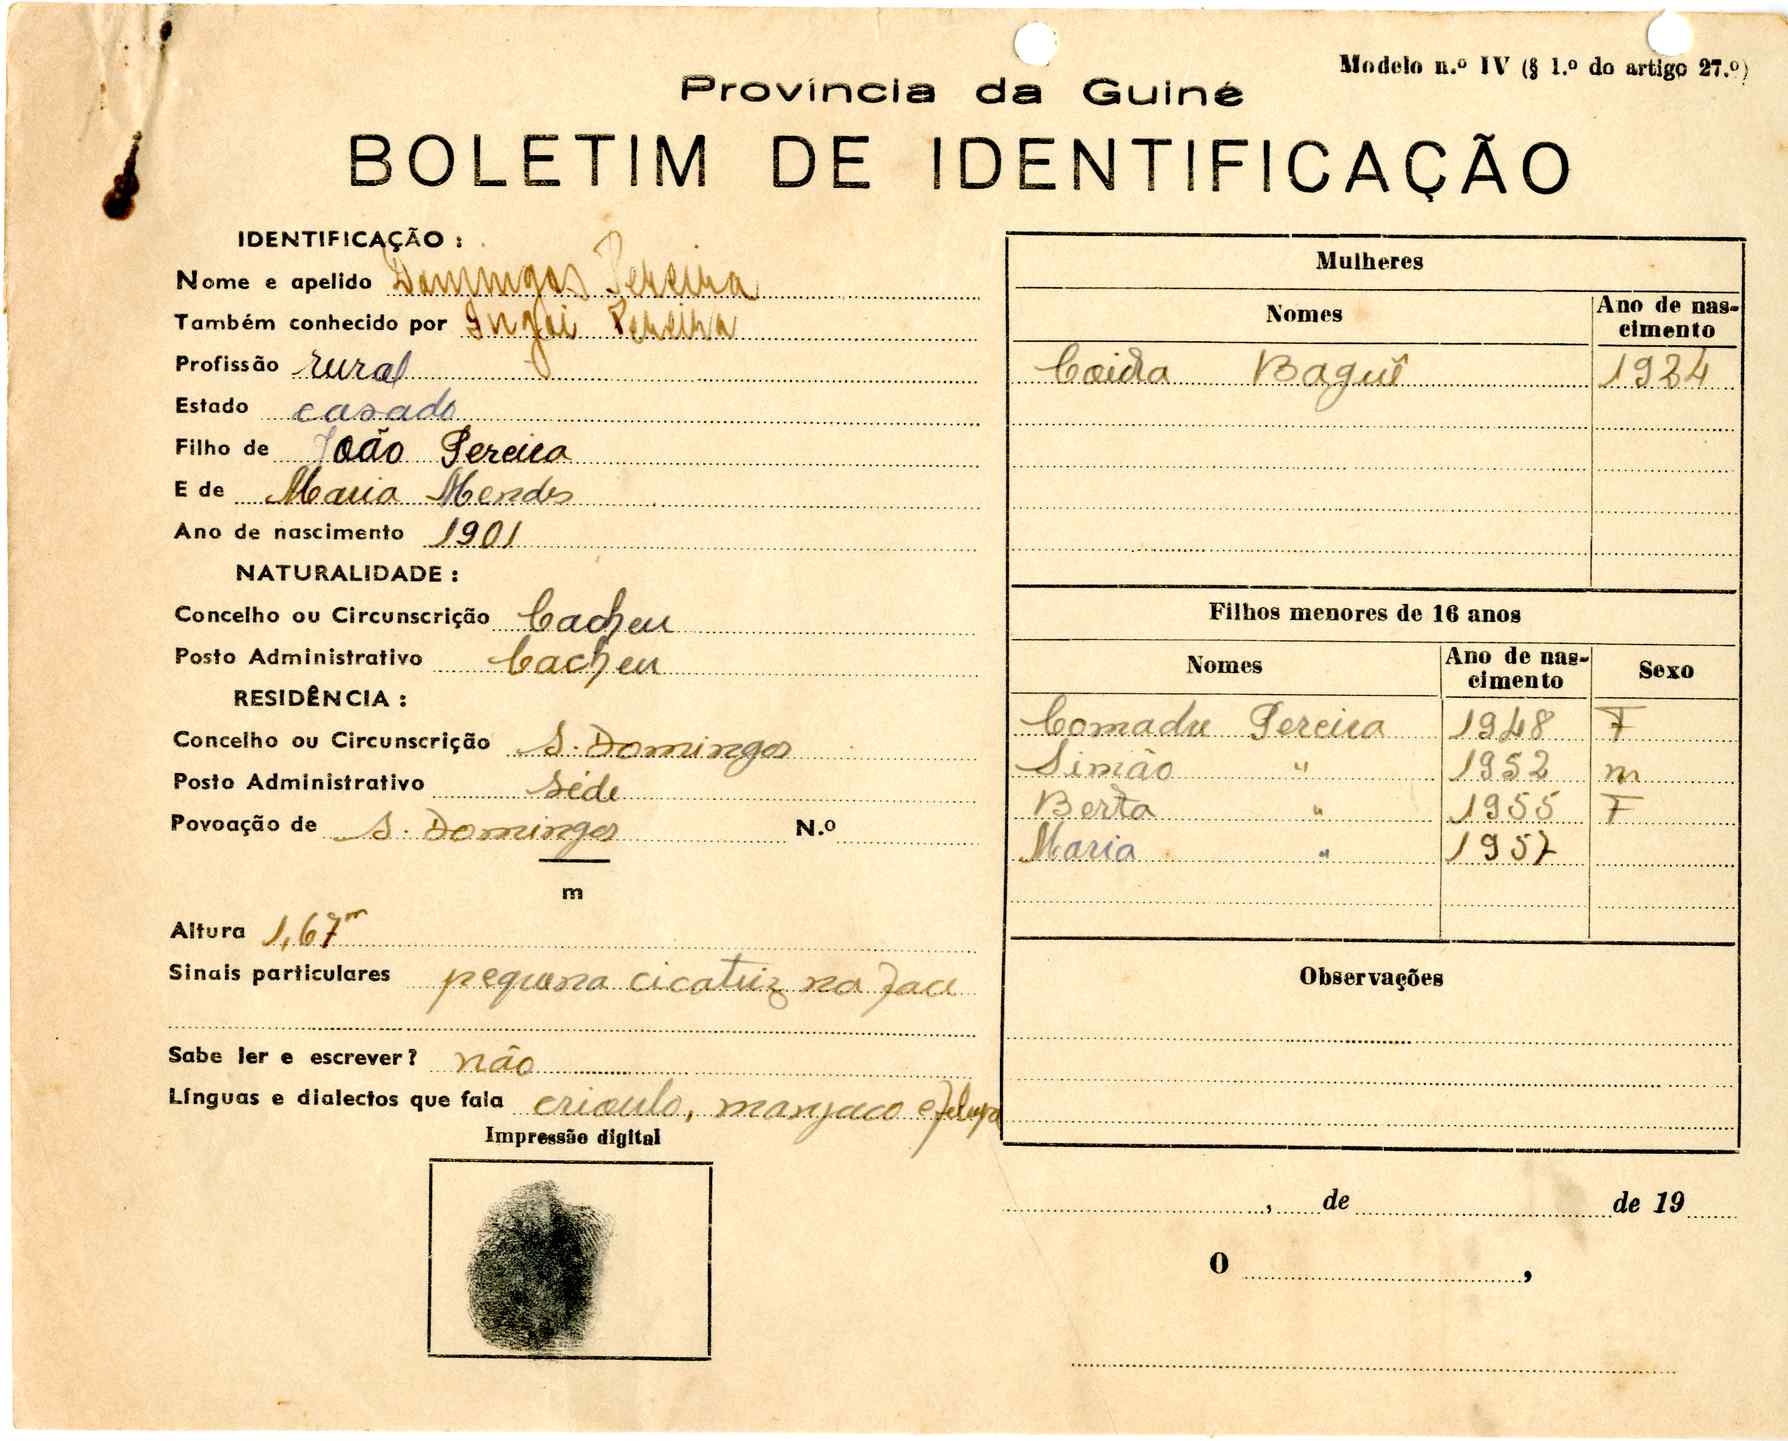 Modelo n.º IV (§ 1.º do artigo 27.º)
Província da Guiné
BOLETIM DE IDENTIFICAÇÃO
IDENTIFICAÇÃO :
Nome e apelido Domingos Pereira
Também conhecido por Pereira
Profissão rural
Estado casado
Filho de João Pereira
E de Maria Mendes
Ano de nascimento 1901
NATURALIDADE :
Concelho ou Circunscrição Cacheu
Posto Administrativo Cacheu
RESIDÊNCIA :
Concelho ou Circunscrição S. Domingos
Posto Administrativo Séde
Povoação de S. Domingos N.º
m
Altura 1,67m
Sinais particulares pequena cicatriz na face
Sabe ler e escrever? não
Línguas e dialectos que fala crioulo, manjaco e felupe
Impressão digital
Mulheres
Nomes Ano de nas-
cimento
Baguê 1924
Filhos menores de 16 anos
Nomes Ano de nas-
cimento Sexo
Comadre Pereira 1948 F
Simão " 1952 m
Berta " 1955 F
Maria " 1957
Observações
, de de 19
O ,